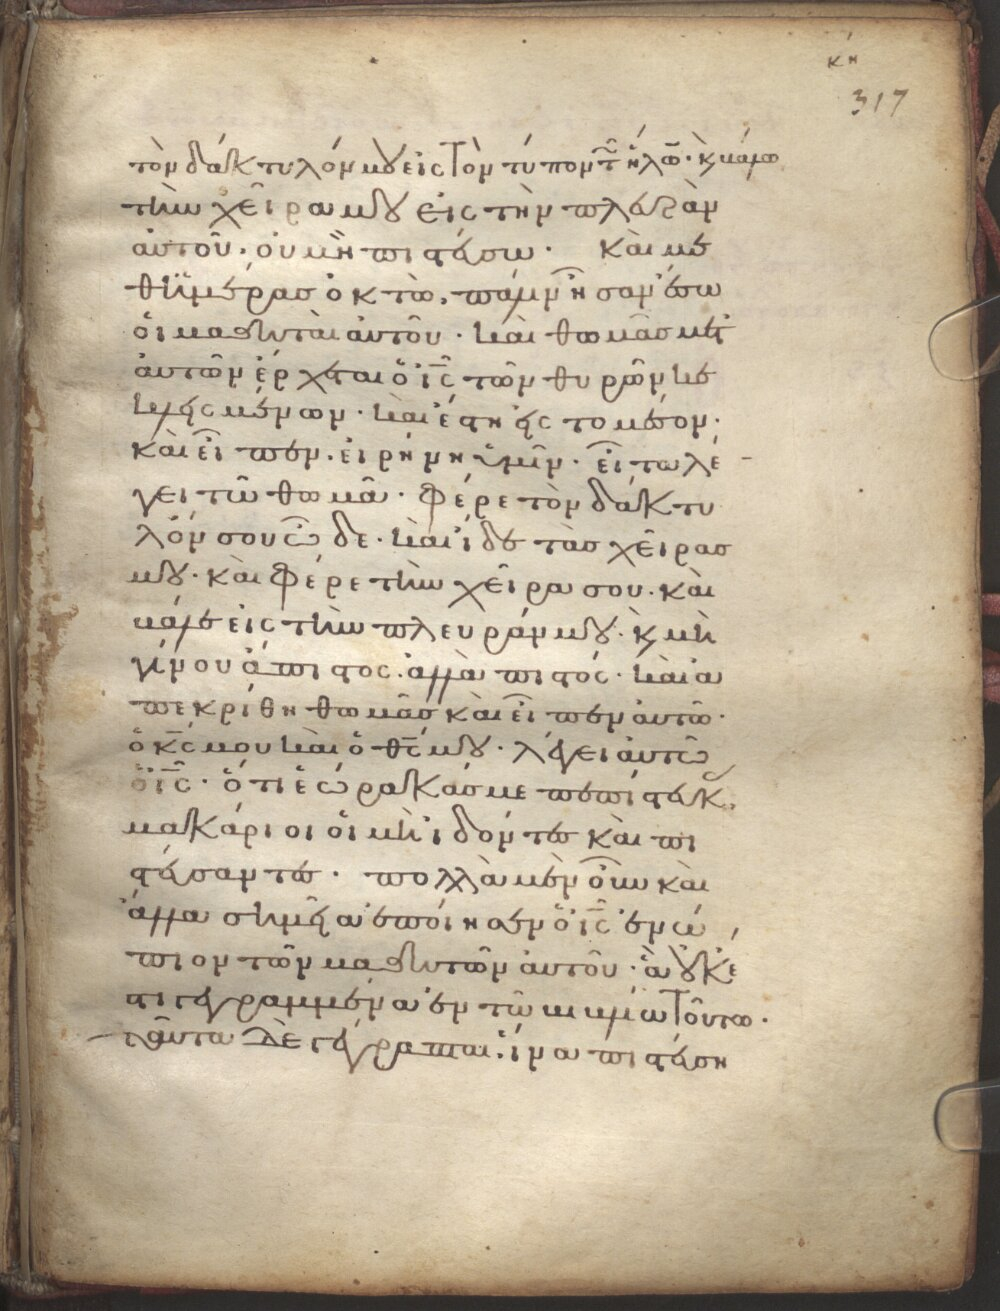 κη
317
τὸν δάκτυλόν μου εἰς τὸν τύπον τῶν ἥλων· κ βάλω
τὴν χεῖρα μου εἰς τὴν πλευρὰν
αὐτοῦ· οὐ μὴ πιστεύσω· Καὶ με
θ ἡμέρας ὀκτὼ, πάλιν ἦσαν ἔσω
οἱ μαθηταὶ αὐτοῦ· καὶ θωμᾶς μετ
αὐτῶν ἔρχεται ὁ ις τῶν θυρῶν κε
κλεισμένων· καὶ ἔστη εἰς το μέσον·
καὶ εἶπεν· εἰρήνη ὑμῖν· εἶτα λέ
γει τῶ θωμᾶ· φέρε τὸν δάκτυ
λόν σου ὧδε· καὶ ἴδε τὰς χεῖρας
μου· καὶ φέρε τὴν χεῖρα σου· καὶ
βάλε εἰς τὴν πλευράν μου· κ μὴ
γίνου ἄπιστος· ἀλλὰ πιστός· καὶ α
πεκρίθη θωμᾶς καὶ εἶπεν αὐτῶ·
ὁ κς μου καὶ ὁ θς μου· λέγει αὐτῶ
ὁ ις· ὅτι ἑώρακάς με πεπίστευκ
μακάριοι οἱ μὴ ἰδόντες καὶ πι
στεύσαντες· πολλὰ μὲν οὖν καὶ
ἄλλα σημεῖα ἐποίησεν ὁ ις ἐνώ
πιον τῶν μαθητῶν αὐτοῦ· ἃ οὐκ ἔ
στι γεγραμμένα ἐν τῶ βιβλίω τούτω·
ταῦτα δὲ γέγραπται, ἵνα πιστεύση